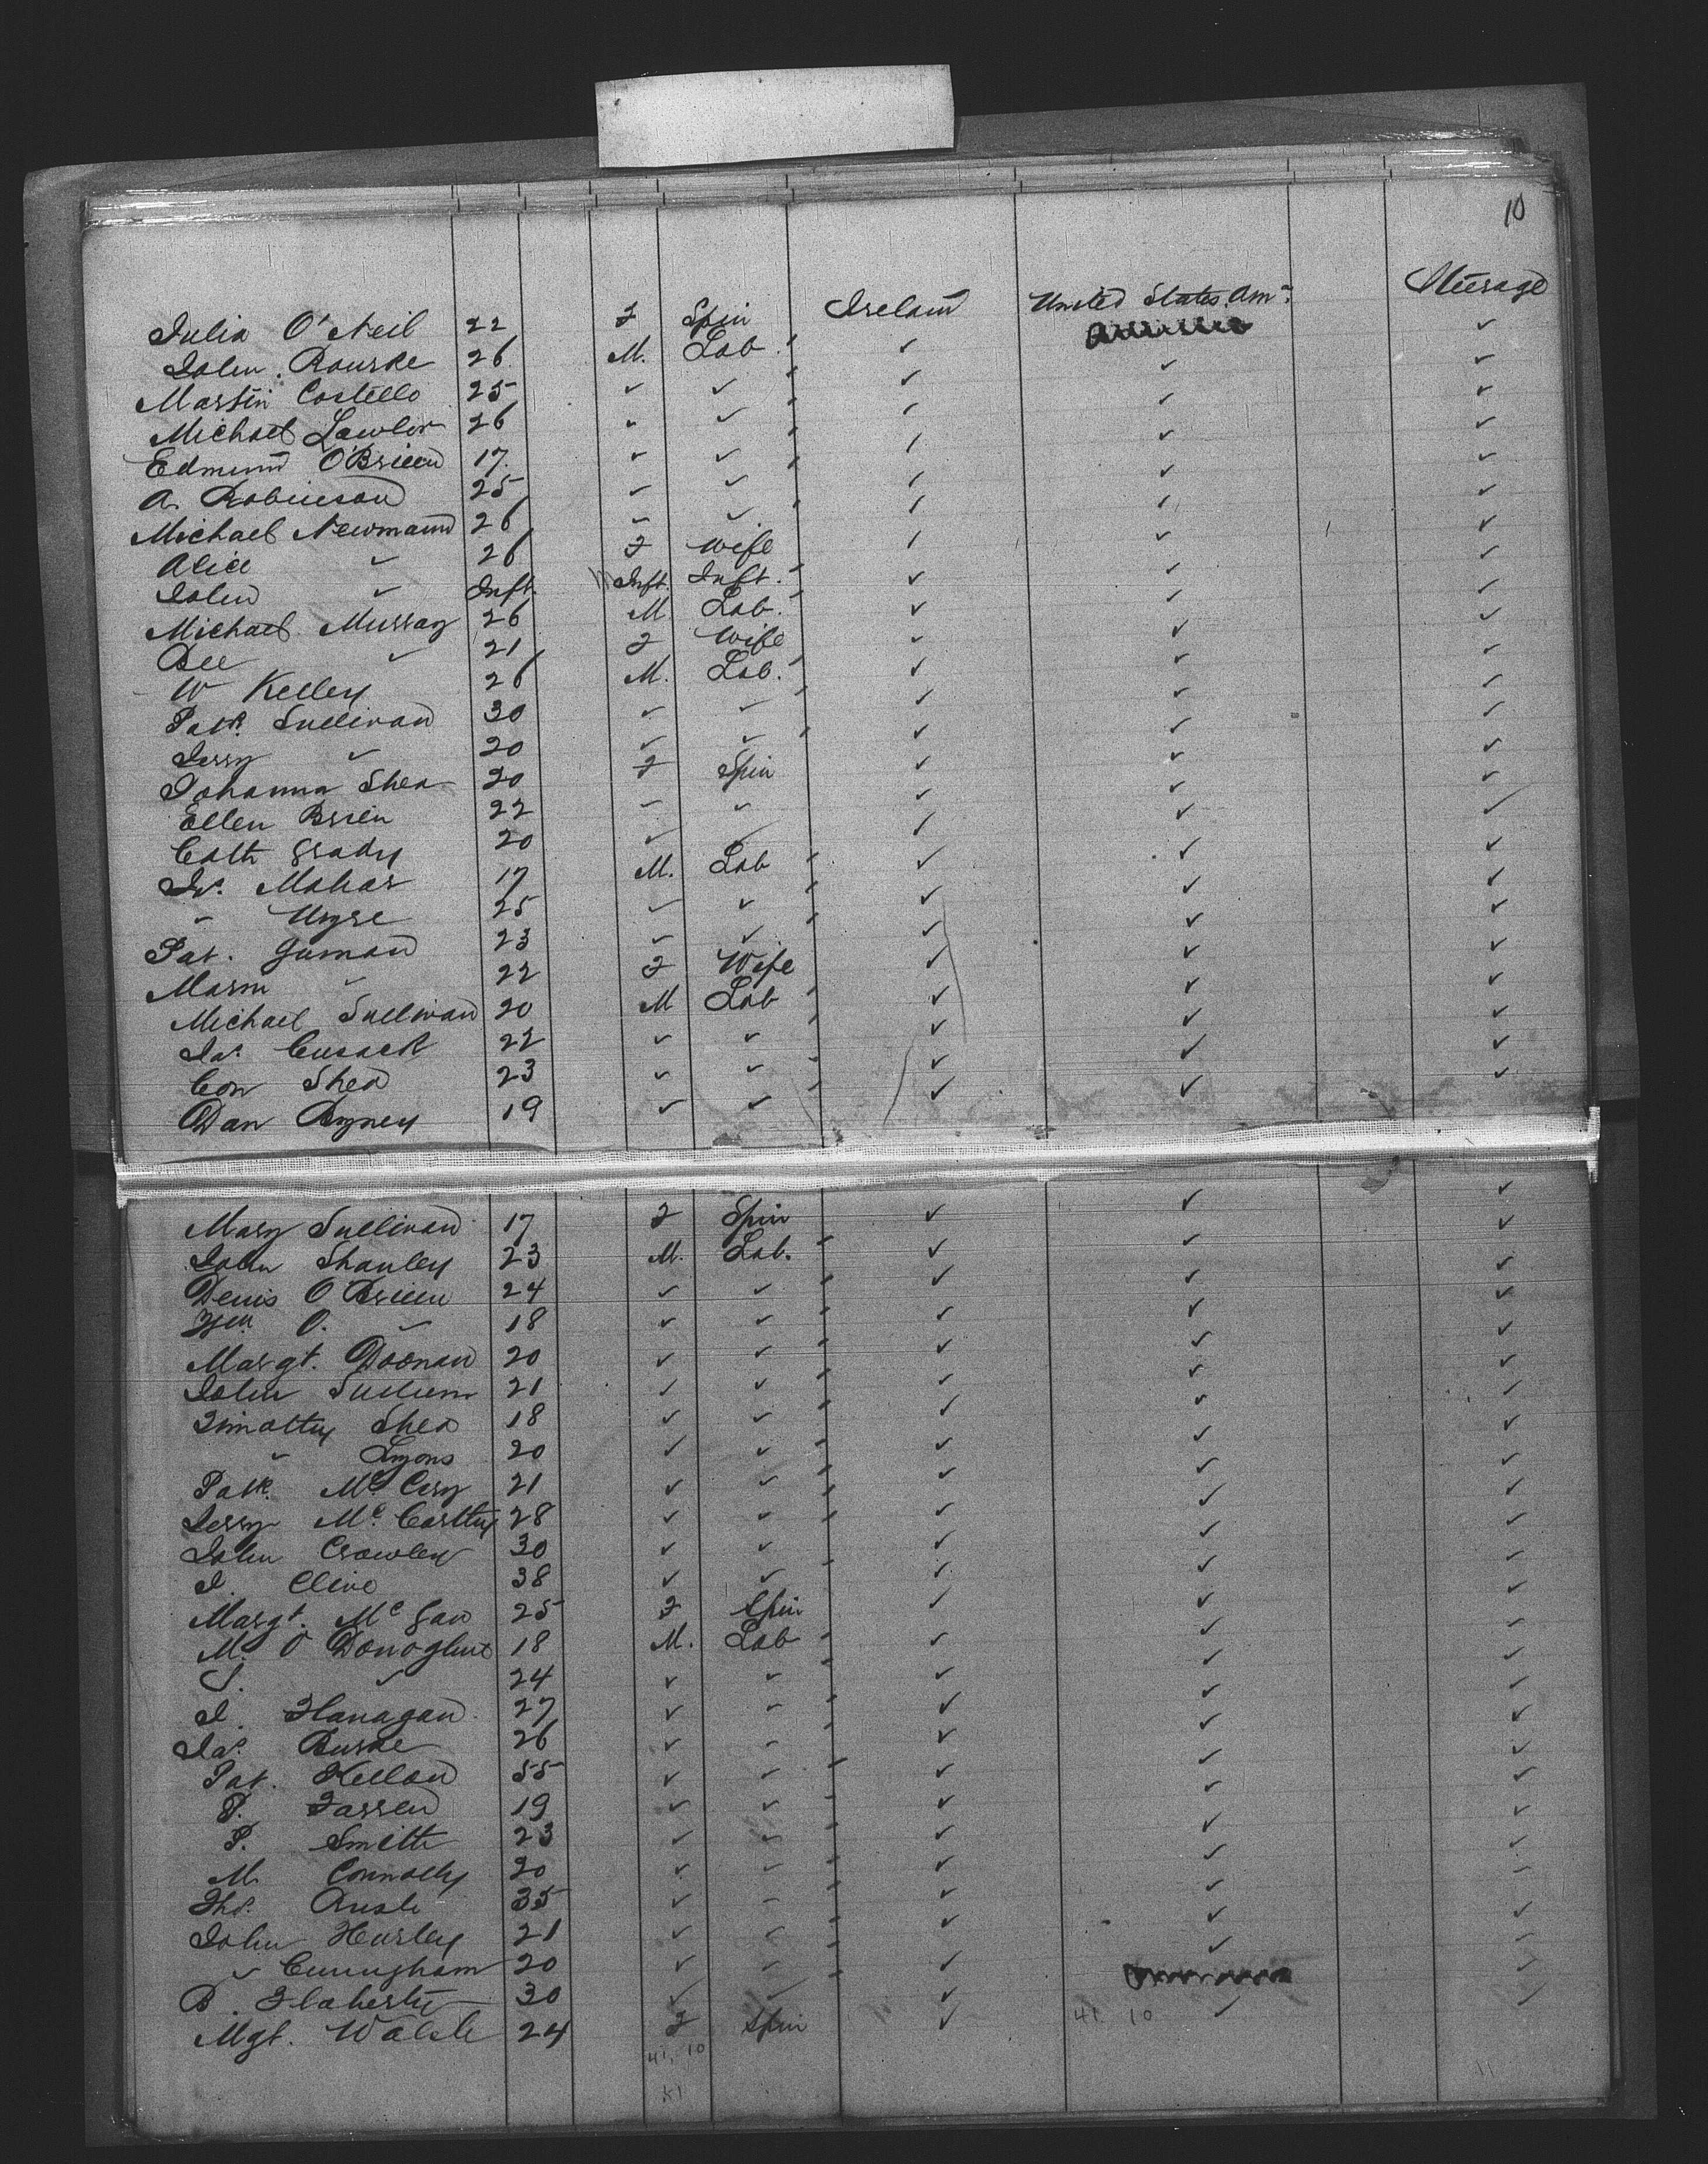 10
Julia O'Neil 22 F Spin Ireland United States Am. Steerage
John Rourke 26 M. Lab. " ✓ ✓ ✓
Martin Costello 25 ✓ ✓ " ✓ ✓ ✓
Michael Lawlor 26 ✓ ✓ " ✓ ✓ ✓
Edmund O'Brien 17 ✓ ✓ " ✓ ✓ ✓
A. Robinson 25 ✓ ✓ " ✓ ✓ ✓
Michael Newmann 26 ✓ ✓ " ✓ ✓ ✓
Alice ✓ 26 F Wife ✓ ✓ ✓
John ✓ Inft. M Inft. Inft. " ✓ ✓ ✓
Michael Murray 26 M Lab. " ✓ ✓ ✓
Bee ✓ 21 F Wife ✓ ✓ ✓
W Kelley 26 M. Lab. " ✓ ✓ ✓
Patk. Sullivan 30 ✓ ✓ " ✓ ✓ ✓
Jerry ✓ 20 ✓ ✓ " ✓ ✓ ✓
Johanna Shea 20 F Spin ✓ ✓ ✓
Ellen Brien 22 ✓ ✓ ✓ ✓ ✓
Cath Grady 20 ✓ ✓ ✓ ✓ ✓
Jas. Mahar 17 M. Lab " ✓ ✓ ✓
✓ 25 ✓ ✓ " ✓ ✓ ✓
Pat. 23 ✓ ✓ " ✓ ✓ ✓
✓ 22 F Wife ✓ ✓ ✓
Michael Sullivan 20 M Lab " ✓ ✓ ✓
Jas. Cusack 22 ✓ ✓ " ✓ ✓ ✓
Con Shea 23 ✓ ✓ " ✓ ✓ ✓
Dan 19 ✓ ✓ " ✓ ✓ ✓
Mary Sullivan 17 F Spin ✓ ✓ ✓
John Shanley 23 M. Lab. " ✓ ✓ ✓
Denis O'Brien 24 ✓ ✓ " ✓ ✓ ✓
O. ✓ 18 ✓ ✓ " ✓ ✓ ✓
Margt. Doonan 20 ✓ ✓ " ✓ ✓ ✓
John 21 ✓ ✓ " ✓ ✓ ✓
Timothy Shea 18 ✓ ✓ " ✓ ✓ ✓
✓ Lyons 20 ✓ ✓ " ✓ ✓ ✓
Patk. 21 ✓ ✓ " ✓ ✓ ✓
Jerry McCarthy 28 ✓ ✓ " ✓ ✓ ✓
John Crowley 30 ✓ ✓ ✓ ✓ ✓
J. Cline 38 ✓ ✓ ✓ ✓ ✓
Margt. McGan 25 F Spin ✓ ✓ ✓
M. O'Donoghue 18 M. Lab " ✓ ✓ ✓
J. ✓ 24 ✓ ✓ " ✓ ✓ ✓
J. Flanagan 27 ✓ ✓ " ✓ ✓ ✓
Jas. Burke 26 ✓ ✓ " ✓ ✓ ✓
Pat. 55 ✓ ✓ " ✓ ✓ ✓
P. Farren 19 ✓ ✓ " ✓ ✓ ✓
P. Smith 23 ✓ ✓ " ✓ ✓ ✓
M. Connolly 20 ✓ ✓ " ✓ ✓ ✓
Thos. 35 ✓ ✓ " ✓ ✓ ✓
John Hurley 21 ✓ ✓ " ✓ ✓ ✓
✓ Cunningham 20 ✓ ✓ " ✓ ✓ ✓
B. Flaherty 30 ✓ ✓ ✓ ✓
Mgt. Walsh 24 F Spin ✓ 41. 10 ✓ ✓
41. 10
51
11